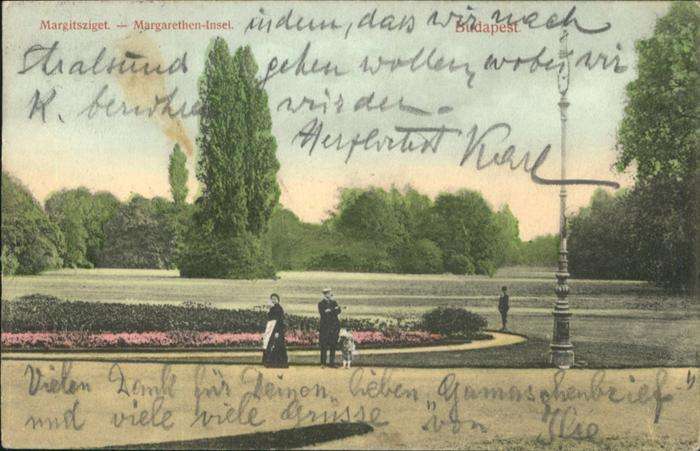 Margitsziget. — Margarethen-Insel.
Budapest.
indem, dass wir nach
Stralsund gehen wollen, wobei wir
K. berühren würden.
Herzlichst Karl
Vielen Dank für Deinen lieben „Gamaschenbrief"
und viele viele Grüsse von Ilse